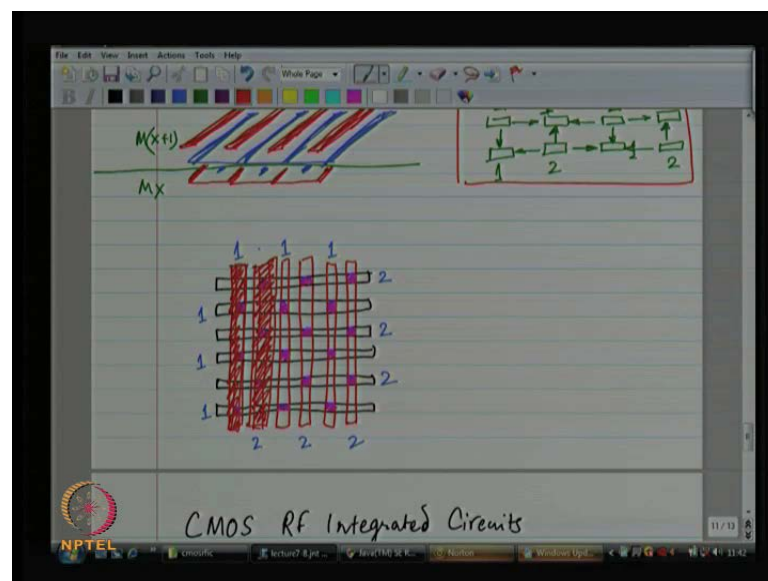 File Edit View Insert Actions Tools Help
Whole Page
B
M(x+1)
Mx
1 2 1 2
1 1 1
2
1
2
1
2
1
2 2 2
CMOS RF Integrated Circuits
11 / 13
NPTEL
cmosrfic
lecture7-8.jnt ...
Java(TM) SE R...
Norton
Windows Upd...
11:42